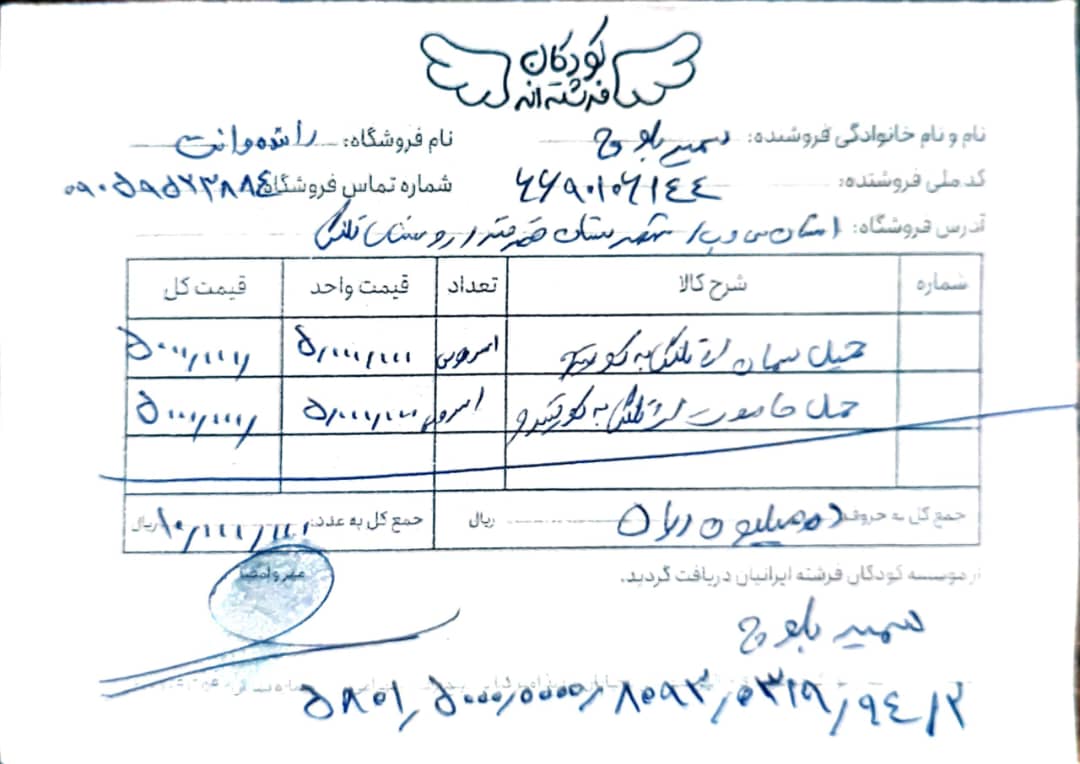 کودکان
فرشته‌اند
نام و نام خانوادگی فروشنده: سمیر بلوچ نام فروشگاه: راننده وانت
کد ملی فروشنده: ۶۶۹۰۱۰۶۱۴۴ شماره تماس فروشگاه: ۰۹۰۵۹۵۲۳۸۸۴
آدرس فروشگاه: استان س و ب / شهرستان قصرقند / روستای تلنگ
شماره شرح کالا تعداد قیمت واحد قیمت کل
حمل سیمان از تلنگ به ۵/۰۰۰/۰۰۰ ۵۰۰۰/۰۰۰/
حمل از تلنگ به ۵/۰۰۰/۰۰۰ ۵۰۰۰/۰۰۰/
جمع کل به حروف: ده میلیون ریال ریال جمع کل به عدد: ۱۰/۰۰۰/۰۰۰ ریال
از موسسه کودکان فرشته ایرانیان دریافت گردید.
مهر و امضا
سمیر بلوچ
۵۸۵۱/۵۰۰۰/۰۰۰۰/۸۰۹۳/۰۳۱۹/۹۴/۲